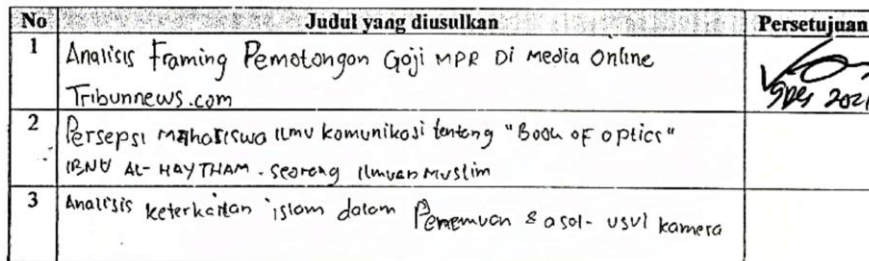 No Judul yang diusulkan Persetujuan
1 Analisis Framing Pemotongan Gaji MPR Di Media Online
Tribunnews.com
2 Persepsi Mahasiswa Ilmu komunikasi tentang "Book OF optics"
IBNU AL-HAYTHAM. Seorang Ilmuan Muslim
3 Analisis keterkaitan islam dalam Penemuan & asal-usul kamera